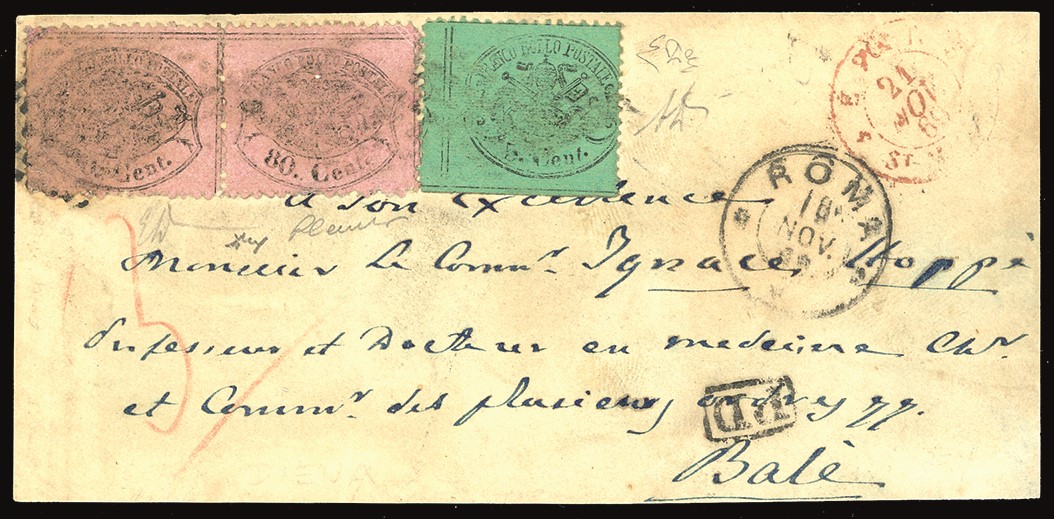 FRANCO BOLLO POSTALE
Cent.
FRANCO BOLLO POSTALE
80. Cent.
FRANCO BOLLO POSTALE
5. Cent.
21
NOV
ROMA
18
NOV.
A son Excellence
Monsieur Le Commr. Ignace Hoppe
Professeur et Docteur en medecine Chr.
et Commr. des plusieurs ordres qq.
PD
Balè